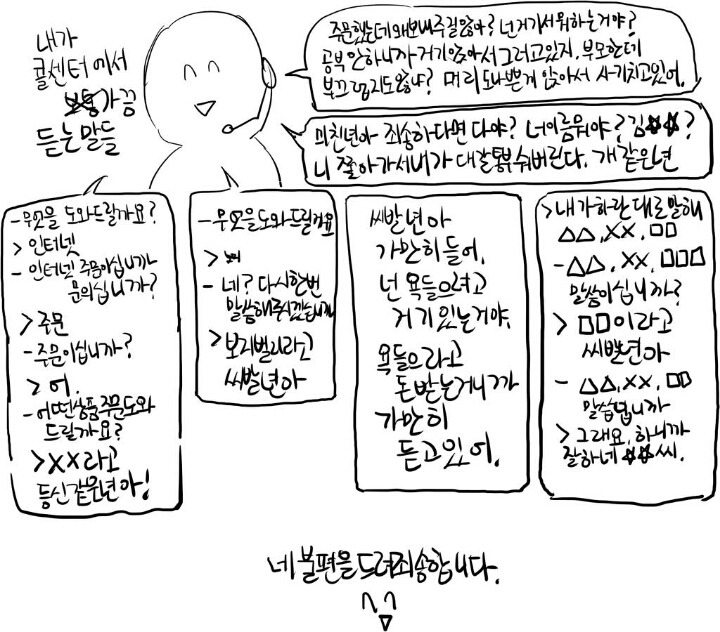 내가
콜센터에서
가끔
듣는 말들
주문했는데 왜 보내주질 않아? 넌 거기서 뭐하는거야?
공부 안하니까 거기 앉아서 그러고있지. 부모한테
부끄럽지도 않냐? 머리도 나쁜게 앉아서 사기치고있어.
미친년아 죄송하다면 다야? 너 이름 뭐야? 김☆☆?
니 찾아가서 내가 대갈통 부숴버린다. 개같은년
-무엇을 도와드릴까요?
>인터넷
-인터넷 주문이십니까
문의십니까?
>주문
-주문이십니까?
>어.
-어떤상품 주문도와
드릴까요?
>XX라고
등신같은년아!
-무엇을 도와드릴까요
>
-네? 다시한번
말씀해주시겠습니까
>보지벌리라고
씨발년아
씨발년아
가만히 들어.
넌 욕들으려고
거기 있는거야.
욕들으라고
돈 받는거니까
가만히
듣고있어.
>내가하란대로 말해
△△, XX, □□
-△△, XX, □□□
말씀이십니까?
>□□이라고
씨발년아
-△△, XX, □□
말씀입니까
>그래요, 하니까
잘하네 ☆☆씨.
네 불편을 드려 죄송합니다.